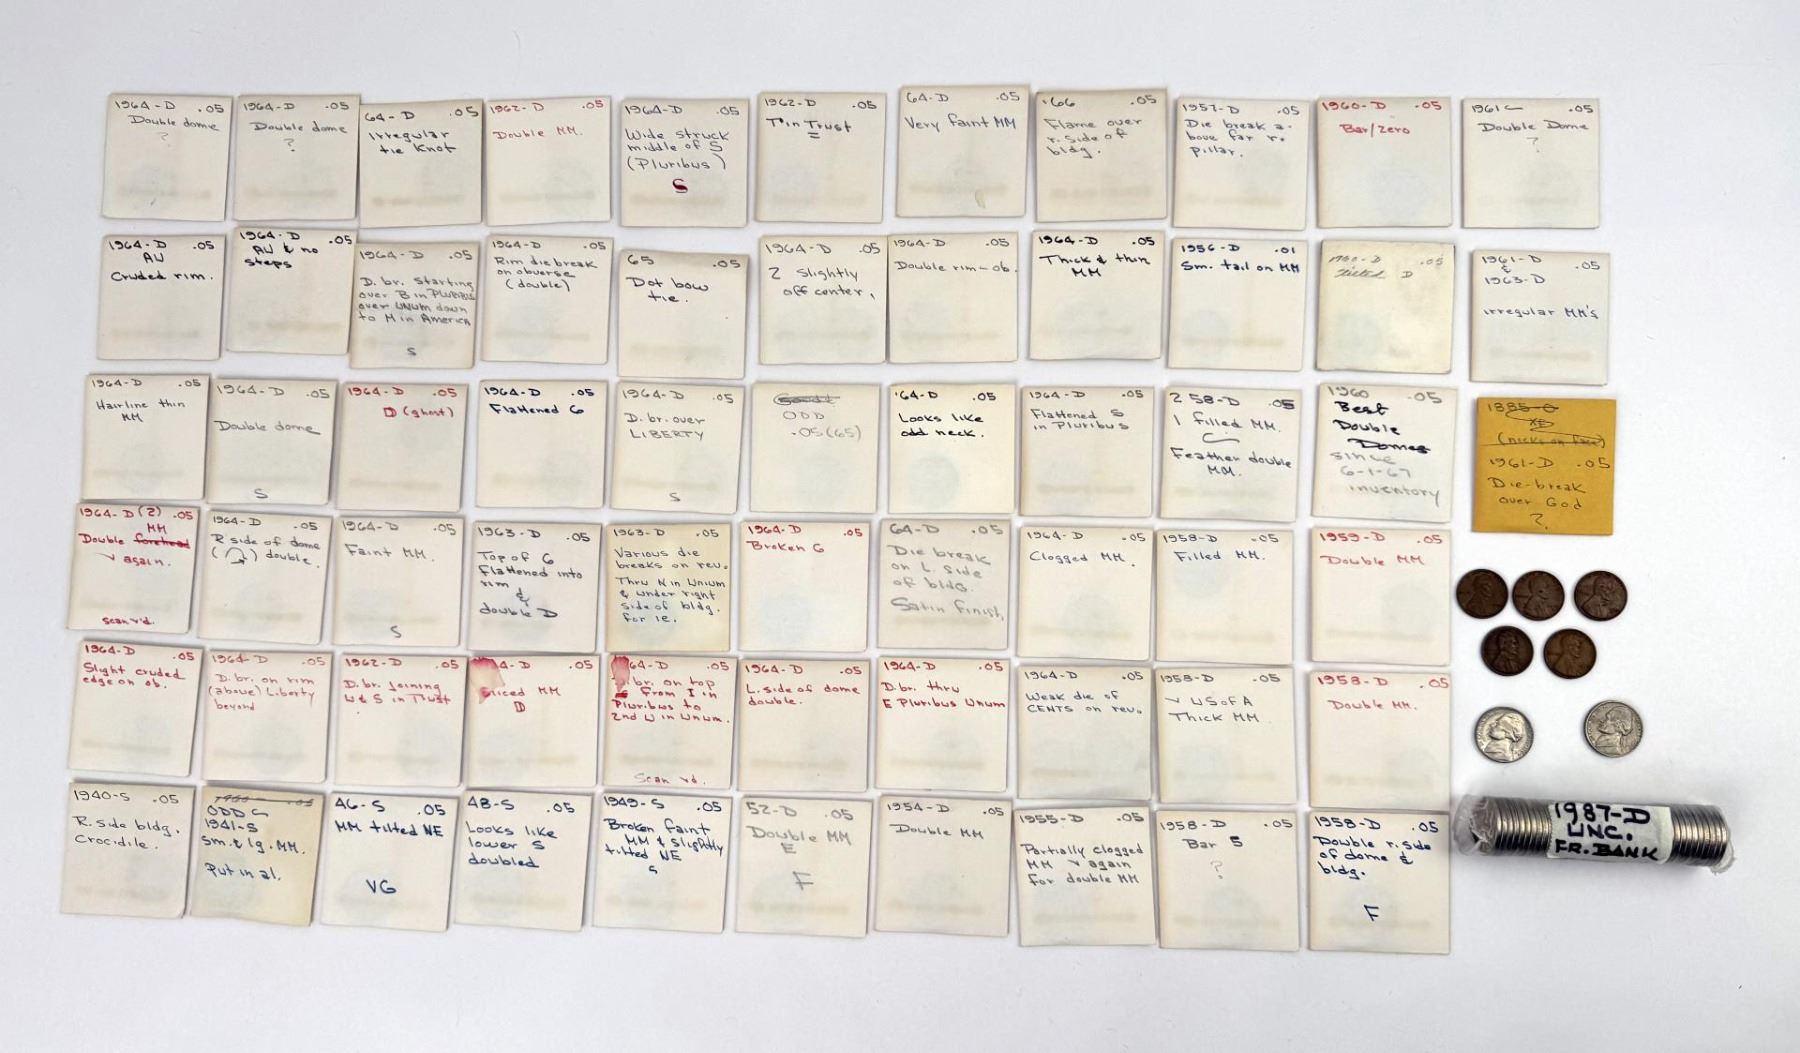 1964-D .05
Double dome
?
1964-D .05
Double dome
?
64-D .05
Irregular
tie knot
1962-D .05
Double MM.
1964-D .05
Wide struck
middle of S
(Pluribus)
S
1962-D .05
T in Trust
64-D .05
Very faint MM
'66 .05
Flame over
r. side of
bldg.
1957-D .05
Die break a-
bove far r.
pillar.
1960-D .05
Bar/zero
1961 .05
Double Dome
?
1964-D .05
AU
Cruded rim.
1964-D .05
AU & no
steps
1964-D .05
D. br. starting
over B in PLURIBUS
over UNUM down
to M in America
S
1964-D .05
Rim die break
on obverse
(double)
65 .05
Dot bow
tie.
1964-D .05
2 slightly
off center,
1964-D .05
Double rim-ob.
1964-D .05
Thick & thin
MM
1956-D .01
Sm. tail on MM
.05
D
1961-D .05
&
1963-D
irregular MM's
1964-D .05
Hairline thin
MM
1964-D .05
Double dome
S
1964-D .05
D (ghost)
1964-D .05
Flattened 6
1964-D .05
D. br. over
LIBERTY
S
ODD
.05 (65)
'64-D .05
Looks like
odd neck.
1964-D .05
Flattened S
in Pluribus
2 58-D .05
1 filled MM.
Feather double
MM.
1960 .05
Best
Double
Domes
since
6-1-67
inventory
1885-O
XF
(nicks on face)
1961-D .05
Die-break
over God
?
1964-D (2) .05
MM
Double forehead
✓ again.
scan r'd.
1964-D .05
R side of dome
( ) double.
1964-D .05
Faint MM.
S
1963-D .05
Top of 6
flattened into
rim
&
double D
1963-D .05
Various die
breaks on rev.
Thru N in Unium
& under right
side of bldg.
for 1e.
1964-D .05
Broken 6
64-D .05
Die break
on L. side
of bldg.
Satin finish,
1964-D .05
Clogged MM.
1958-D .05
Filled MM.
1959-D .05
Double MM
1964-D .05
Slight cruded
edge on ob.
1964-D .05
D. br. on rim
(above) Liberty
beyond
1962-D .05
D. br. joining
U & S in Trust
4-D .05
sliced MM
D
64-D .05
br. on top
from I in
Pluribus to
2nd U in Unum.
Scan r'd.
1964-D .05
L. side of dome
double.
1964-D .05
D. br. thru
E Pluribus Unum
1964-D .05
Weak die of
CENTS on rev.
1958-D .05
✓ US of A
Thick MM
1958-D .05
Double MM.
1940-S .05
R. side bldg.
Crocidile.
ODD
1941-S
Sm. & lg. MM.
Put in al.
46-S .05
MM tilted NE
VG
48-S .05
Looks like
lower S
doubled
1949-S .05
Broken faint
MM & slightly
tilted NE
S
52-D .05
Double MM
E
F
1954-D .05
Double MM
1955-D .05
Partially clogged
MM ✓ again
for double MM
1958-D .05
Bar 5
?
1958-D .05
Double r. side
of dome &
bldg.
F
1987-D
UNC.
FR. BANK